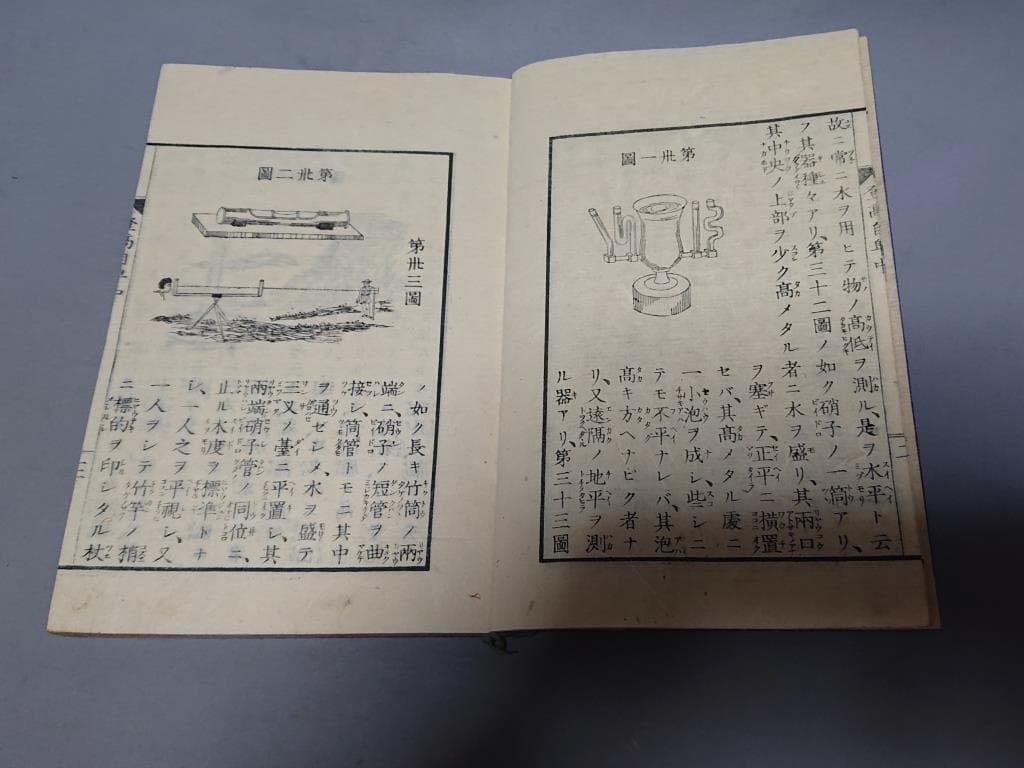 故ニ常ニ水ヲ用ヒテ物ノ髙低ヲ測ル、是ヲ水平ト云
フ其器種々アリ、第三十二圖ノ如ク硝子ノ一筒アリ、
其中央ノ上部ヲ少ク髙メタル者ニ水ヲ盛リ其兩口
ヲ塞ギテ、正平ニ横置
セバ、其髙メタル處ニ
一小泡ヲ成シ、些シニ
テモ不平ナレバ、其泡
髙キ方ヘナビク者ナ
リ、又遠隅ノ地平ヲ測
ル器アリ、第三十三圖
第卅一圖
第卅二圖
第卅三圖
ノ如ク長キ竹筒ノ兩
端ニ、硝子ノ短管ヲ曲
接シ、筒管トモニ其中
ヲ通ゼシメ、水ヲ盛テ
三叉ノ臺ニ平置シ、其
兩端硝子管ノ同位ニ、
止ル水度ヲ標準トナ
シ、一人之ヲ平視シ、又
一人ヲシテ竹竿ノ梢
ニ標的ヲ印シタル杖